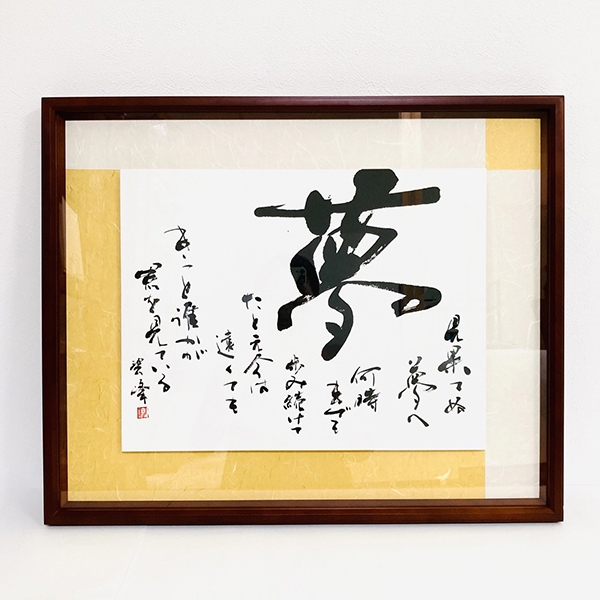 夢
見果てぬ
夢へ
何時
までも
歩み続けて
たとえ今は
遠くても
きっと誰かが
君を見ている